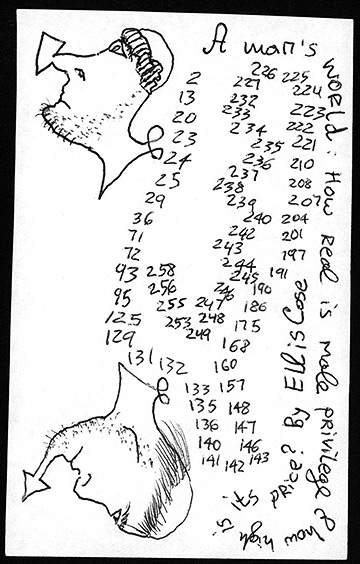 A man's
world: How real is male privilege & how
high is
its price? By Ellis Cose
2
13
20
23
24
25
29
36
71
72
93
95
125
129
131
132
133
135
136
140
141
142
143
146
147
148
157
160
168
175
186
190
191
197
201
204
207
208
210
221
222
223
224
225
226
227
232
233
234
235
236
237
238
239
240
242
243
244
245
246
247
248
249
253
255
256
258